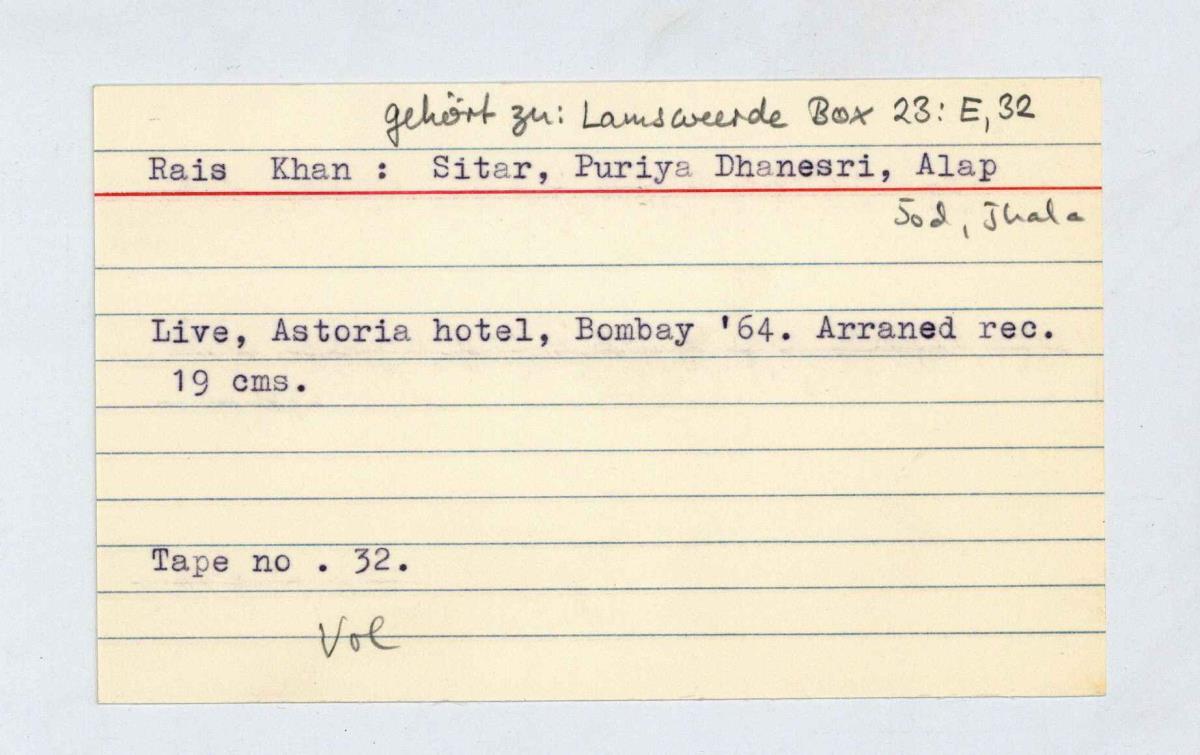 gehört zu: Lamsweerde Box 23: E,32
Rais Khan : Sitar, Puriya Dhanesri, Alap
Jod, Jhala
Live, Astoria hotel, Bombay '64. Arraned rec.
19 cms.
Tape no . 32.
Vol